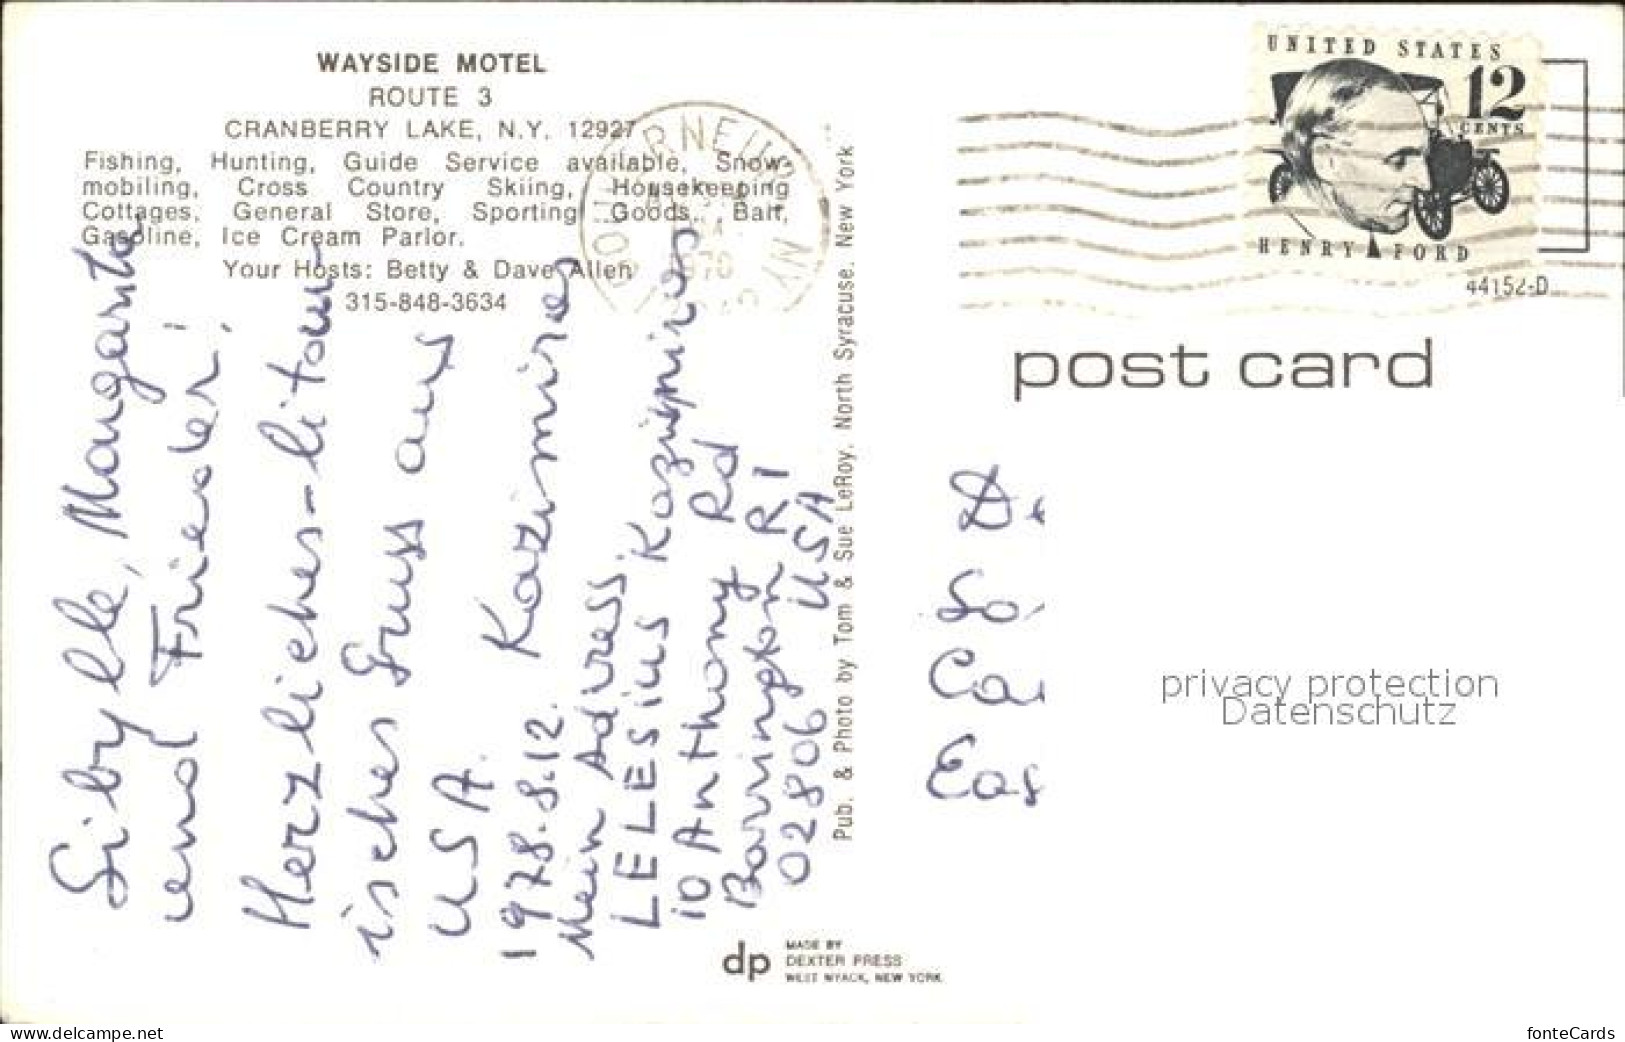 WAYSIDE MOTEL
ROUTE 3
CRANBERRY LAKE, N.Y. 12927
Fishing, Hunting, Guide Service available, Snow-
mobiling, Cross Country Skiing, Housekeeping
Cottages, General Store, Sporting Goods, Bait,
Gasoline, Ice Cream Parlor.
Your Hosts: Betty & Dave Allen
315-848-3634
Sibylle, Margarita
und Frieder!
Herzliches-litau-
isches Gruss aus
USA. Kazimieras
1978.8.12.
Mein Adress
LELESIUS Kazimieras
10 Anthony Rd
Barrington RI
02806 USA
Pub. & Photo by Tom & Sue LeRoy, North Syracuse, New York
dp
MADE BY
DEXTER PRESS
WEST NYACK, NEW YORK
UNITED STATES
12
CENTS
HENRY FORD
44152-D
post card
privacy protection
Datenschutz
www.delcampe.net
fonteCards